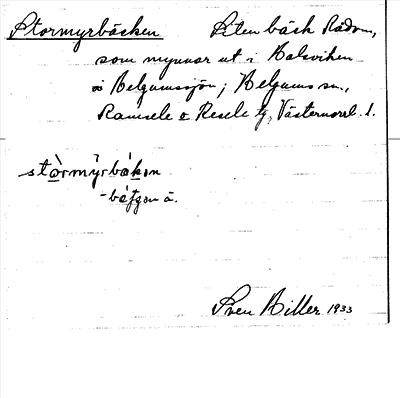 Stormyrbäcken Liten bäck
som mynnar ut i Halsviken
i Helgumssjön; Helgums sn.,
Ramsele & Resele tg, Västernorrl. l.
stòrmýrbäkən
-bäfgən ä.
Sven Hiller 1933